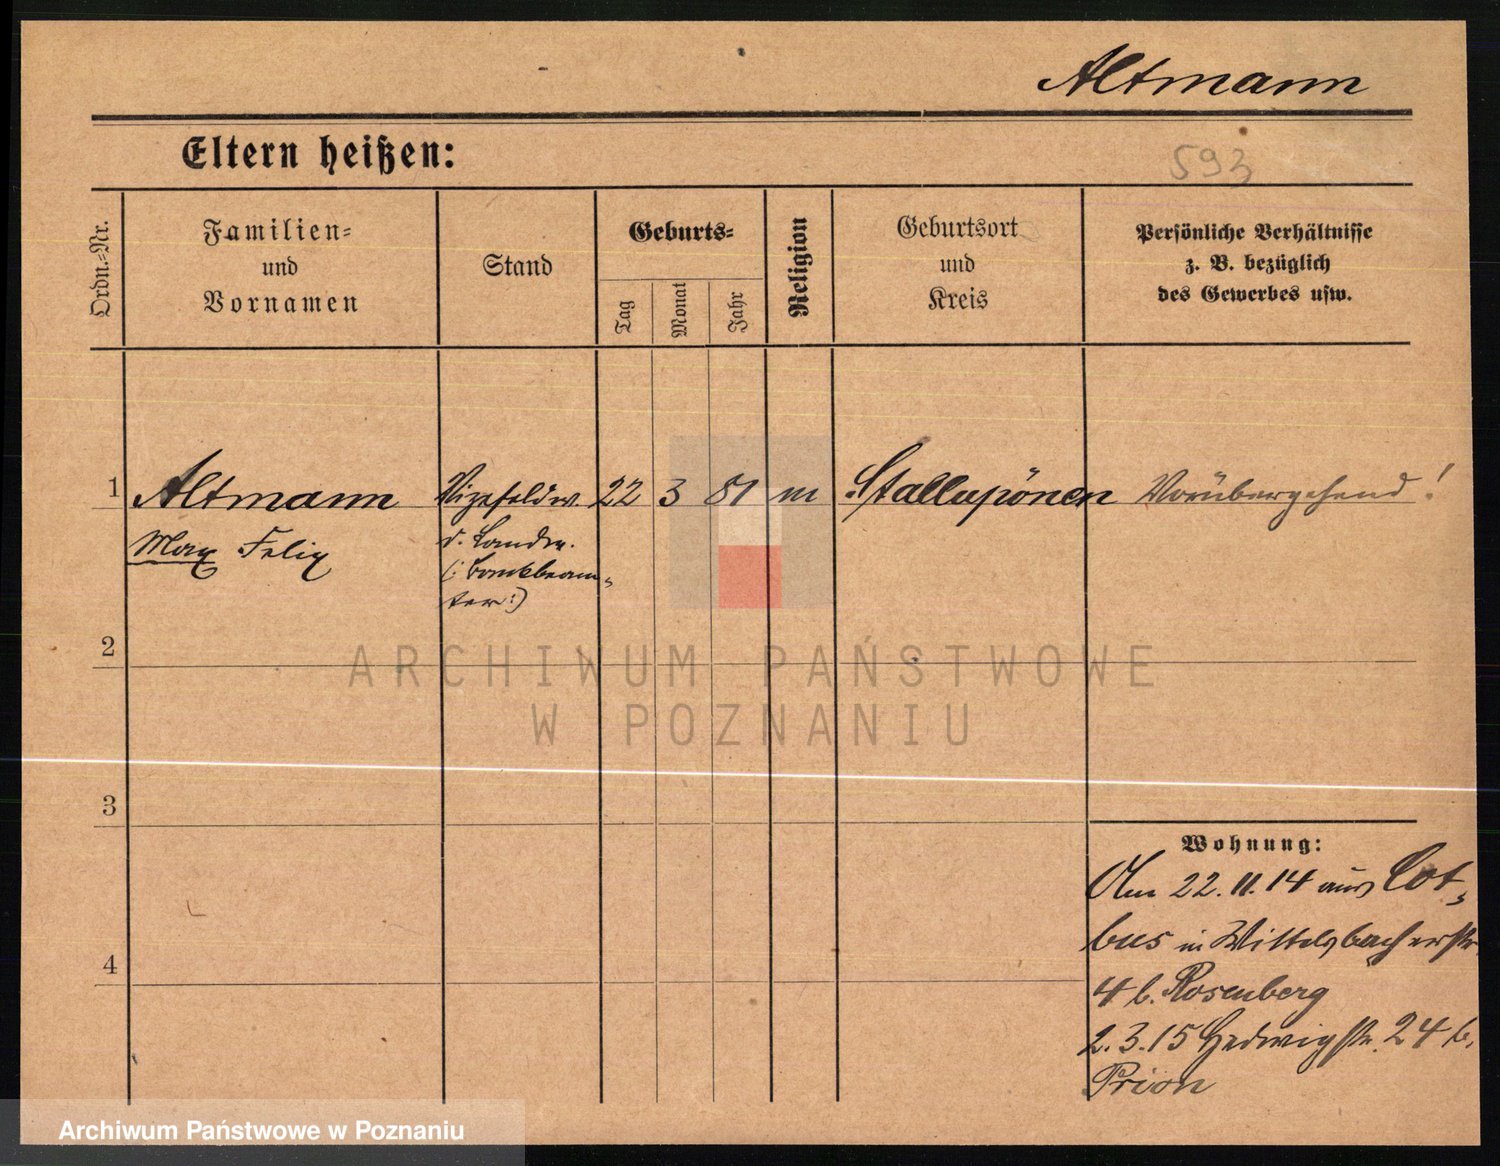 Altmann
Eltern heißen:
593
Ordn.-Nr.
Familien-
und
Vornamen
Stand
Geburts-
Tag
Monat
Jahr
Religion
Geburtsort
und
Kreis
Persönliche Verhältnisse
z. B. bezüglich
des Gewerbes usw.
1 Altmann Vizefeldw. 22 3 81 m Stallupönen Vorübergehend!
Max Felix d. Landw.
(: Bankbeam-
ter :)
2
ARCHIWUM PAŃSTWOWE
W POZNANIU
3
Wohnung:
Am 22. 11. 14 aus Cot-
bus in Wittelsbacherstr.
4
4 b. Rosenberg
2. 3. 15 Hedwigstr. 24 b.
Prion
Archiwum Państwowe w Poznaniu